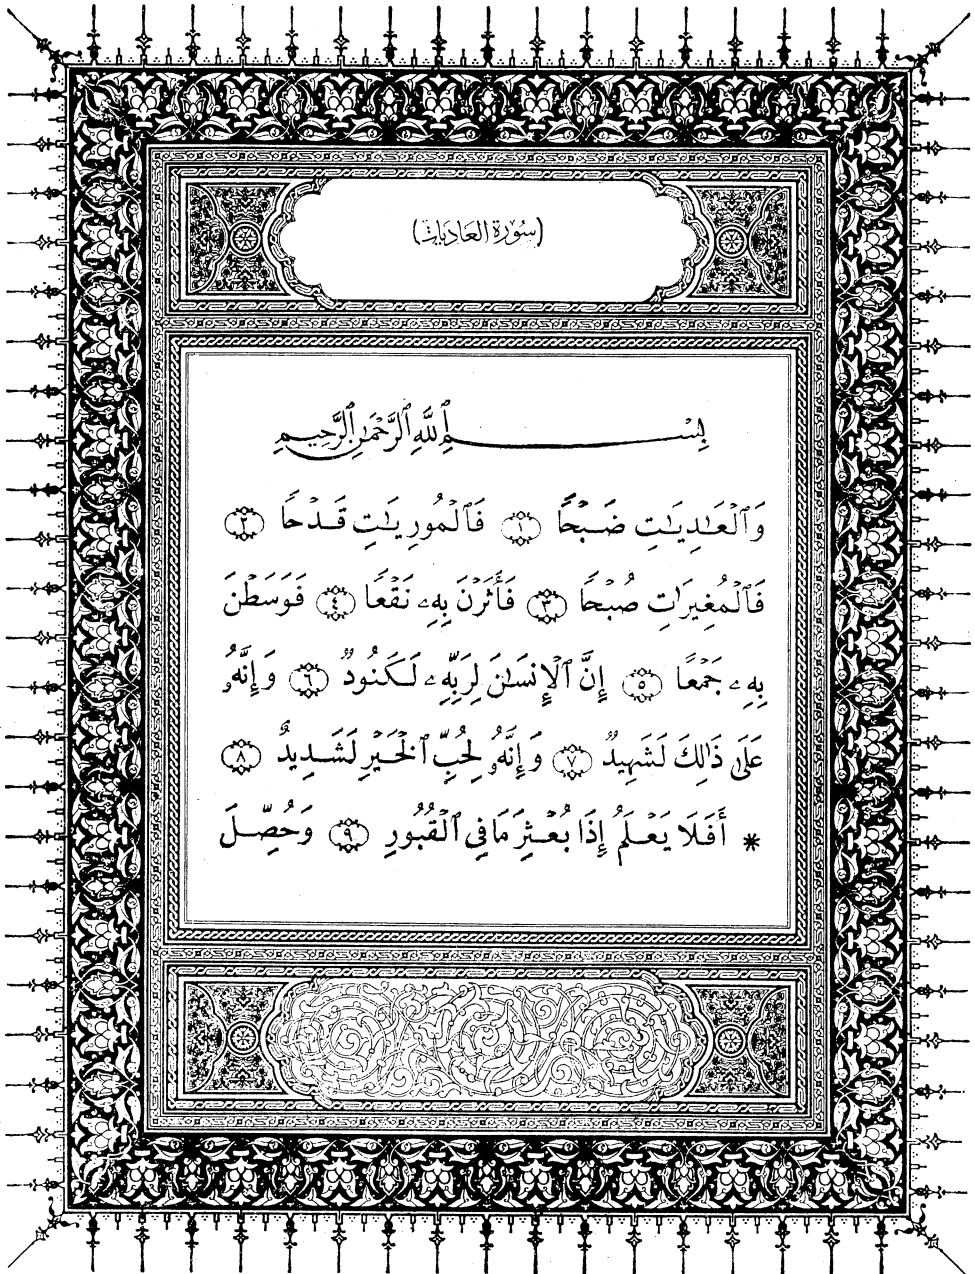 (سُورَة العَاديَات)
بِسْمِ ٱللَّهِ ٱلرَّحْمَٰنِ ٱلرَّحِيمِ
وَٱلْعَٰدِيَٰتِ ضَبْحًا ١ فَٱلْمُورِيَٰتِ قَدْحًا ٢
فَٱلْمُغِيرَٰتِ صُبْحًا ٣ فَأَثَرْنَ بِهِۦ نَقْعًا ٤ فَوَسَطْنَ
بِهِۦ جَمْعًا ٥ إِنَّ ٱلْإِنسَٰنَ لِرَبِّهِۦ لَكَنُودٌ ٦ وَإِنَّهُۥ
عَلَىٰ ذَٰلِكَ لَشَهِيدٌ ٧ وَإِنَّهُۥ لِحُبِّ ٱلْخَيْرِ لَشَدِيدٌ ٨
* أَفَلَا يَعْلَمُ إِذَا بُعْثِرَ مَا فِي ٱلْقُبُورِ ٩ وَحُصِّلَ